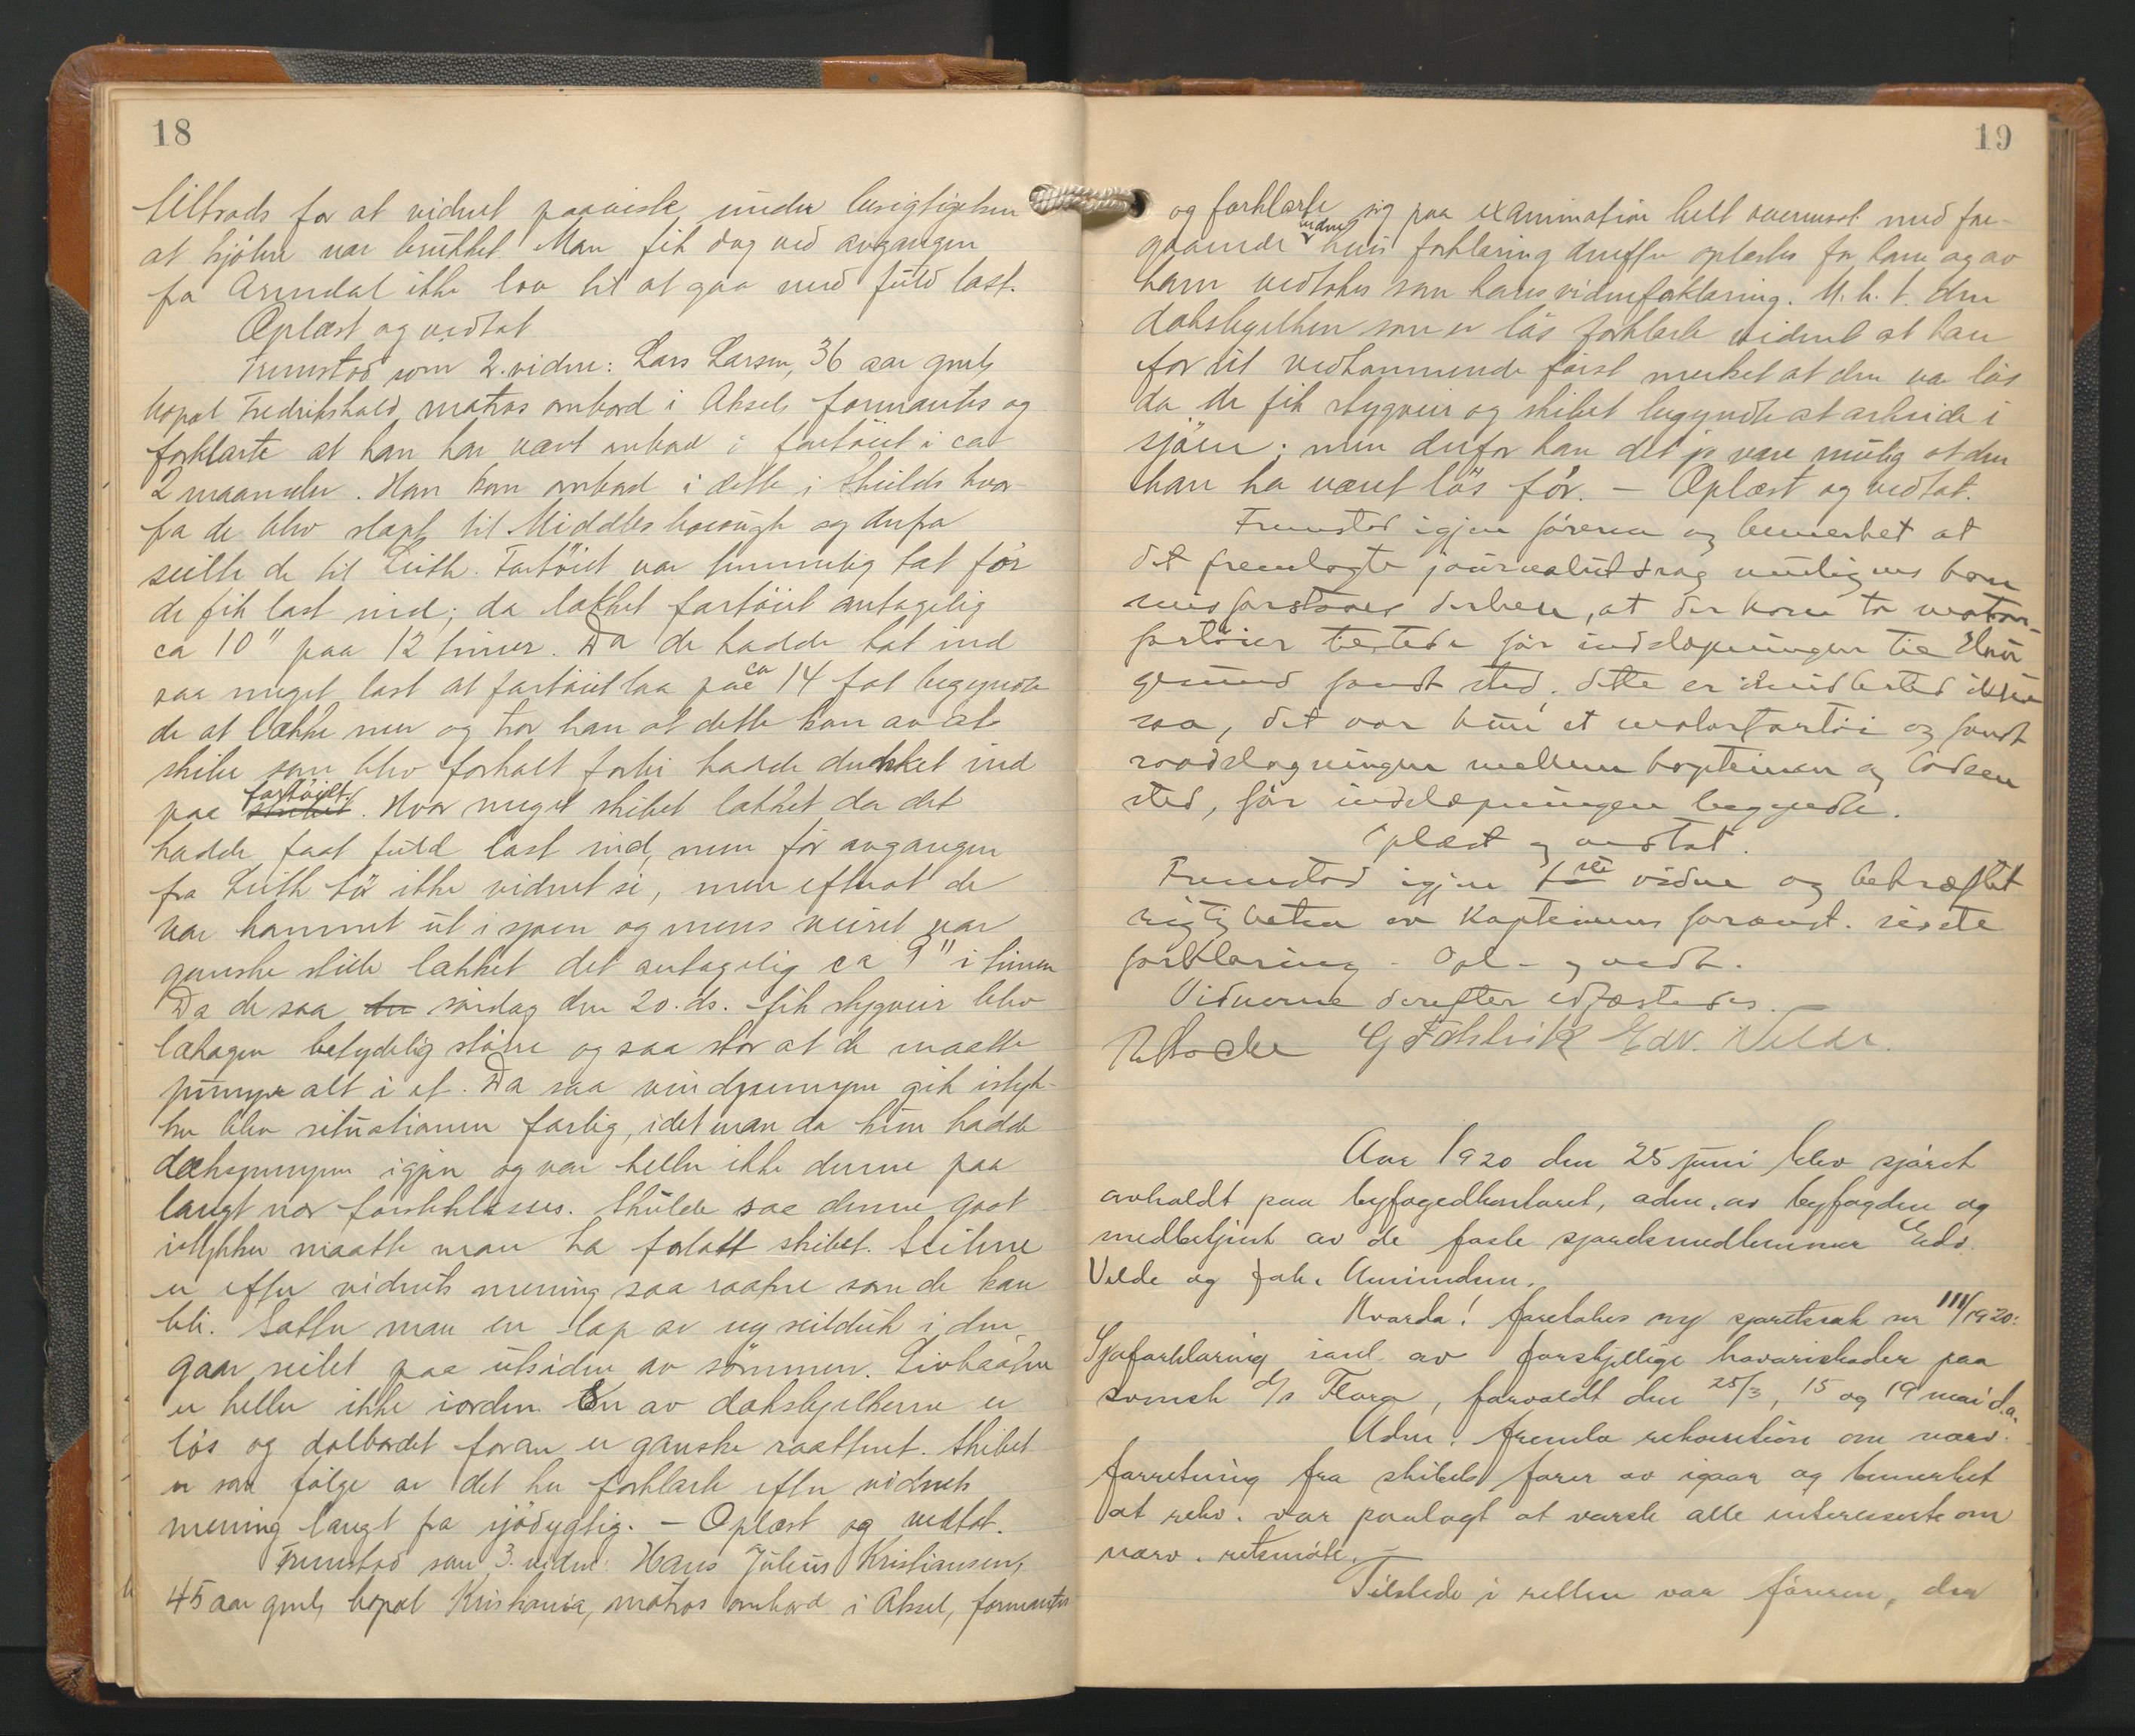 18
tiltrods for at vidnet paaviste under besigtigelsen
at kjölen var brukket. Man fik dog ved avgangen
fra Arendal ikke lov til at gaa med fuld last.
Oplæst og vedtat
Fremstod som 2. vidne: Lars Larsen, 36 aar gml,
bopæl Fredrikshald, matros ombord i Aksel, formantes og
forklarte at han har vært ombord i fartöiet i ca
2 maaneder. Han kom ombord i dette i Shields hvor-
fra de blev slæpt til Middlesborough og derfra
seilte de til Leith. Fartöiet var temmelig tæt för
de fik last ind; da lækket fartöiet antagelig
ca 10" paa 12 timer. Da de hadde tat ind
saa meget last at fartöiet laa paa ca 14 fot begyndte
de at lække mer og tror han at dette kom av at
skibe som blev forhalt forbi hadde dunket ind
paa fartöiet. Hvor meget skibet lækket da det
hadde faat fuld last ind, men för avgangen
fra Leith tör ikke vidnet si, men efterat de
var kommet ut i sjöen og mens veiret var
ganske stille lækket det antagelig ca 9" i timen
Da de saa söndag den 20. ds. fik stygveir blev
lækagen betydelig större og saa stor at de maatte
pumpe alt i et. Da saa vindpumpen gik istyk-
ker blev situationen farlig, idet man da kun hadde
dækspumpen igjen og var heller ikke denne paa
langt nær förstklasses. Skulde saa denne gaat
istykker maatte man ha forlatt skibet. Seilene
er efter vidnets mening saa raatne som de kan
bli. Sætter man en lap av ny seilduk i den
gaar seilet paa utsiden av sömmen. Livbaaten
er heller ikke iorden. En av dæksbjelkerne er
lös og dolbordet foran er ganske raattent. Skibet
er som fölge av det her forklarte efter vidnets
mening langt fra sjödygtig. – Oplæst og vedtat.
Fremstod som 3. vidne: Hans Julius Kristiansen,
45 aar gml, bopæl Kristiania, matros ombord i Aksel, formantes
19
og forklarte sig paa examination helt overensst. med fore-
gaaende vidne hvis forklaring derefter oplæstes for ham og av
ham vedtokes som hans vidneforklaring. M.h.t. den
dæksbjelken som er lös forklarte vidnet at han
for sit vedkommende först merket at den var lös
da de fik stygveir og skibet begyndte at arbeide i
sjöen; men derfor kan det jo være mulig at den
kan ha været lös för. – Oplæst og vedtat.
Fremstod igjen föreren og bemerket at
det fremlagte journalutdrag muligens kan
misforstaaes derhen, at der kom to motor-
fartöier tilstede för indslæpningen til
fandt sted; dette er imidlertid ikke
saa, det var kun et motorfartöi og fandt
raadslagningen mellem kapteinen og lodsen
sted, för indslæpningen begyndte.
Oplæst og vedtat.
Fremstod igjen 1ste vidne og bekræftet
rigtigheten av kapteinens foranst. sidste
forklaring. Opl. og vedt.
Vidnerne derefter edfæstedes.
Edv. Velde.
Aar 1920 den 25 juni blev sjöret
avholdt paa byfogedkontoret, adm. av byfogden og
medbetjent av de faste sjöretsmedlemmer Edv.
Velde og Joh. Amundsen.
Hvorda! foretokes ny sjöretssak nr III/1920:
Sjöforklaring i anl. av forskjellige havariskader paa
svensk d/s Flora, forvoldt den 25/3, 15 og 19 mai d.a.
Adm. fremla rekvisition om nærv.
forretning fra skibets förer av igaar og bemerket
at rekv. var paalagt at varsle alle interesserte om
nærv. retsmöte. –
Tilstede i retten var föreren, der